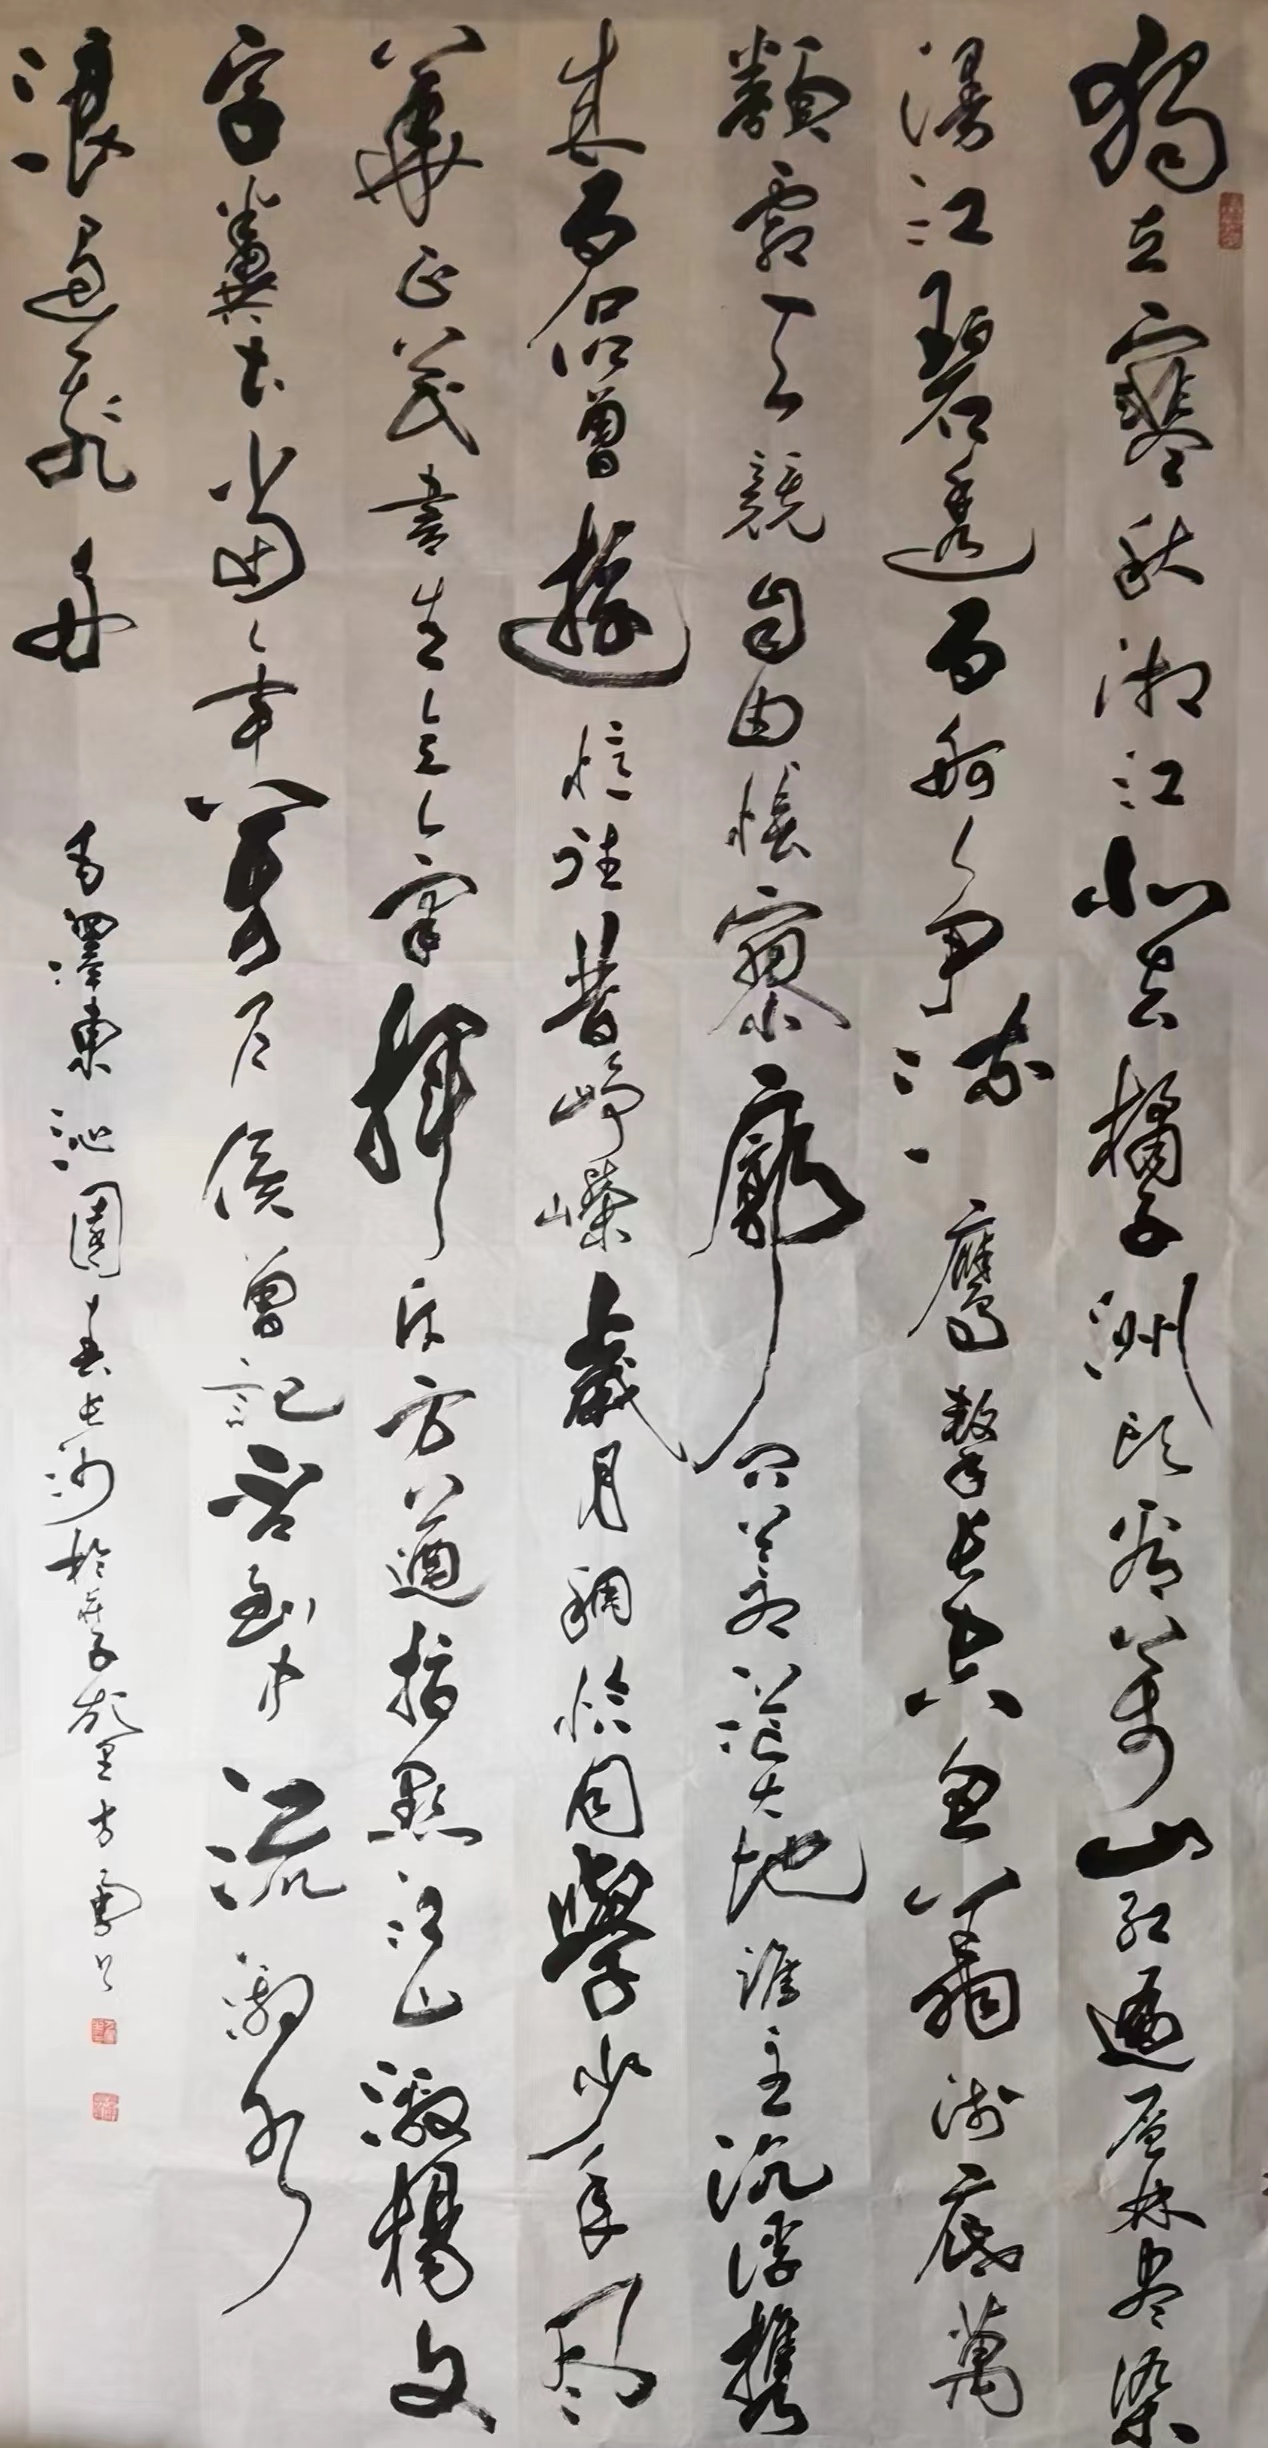 獨立寒秋湘江北去橘子洲頭看萬山紅遍層林盡染
漫江碧透百舸爭流鷹擊長空魚翔淺底萬
類霜天競自由悵寥廓問蒼茫大地誰主沉浮攜
來百侶曾遊憶往昔崢嶸歲月稠恰同學少年風
華正茂書生意氣揮斥方遒指點江山激揚文
字糞土當年萬戶侯曾記否到中流激水
浪遏飛舟
毛澤東沁園春長沙於莊子故里方勇書